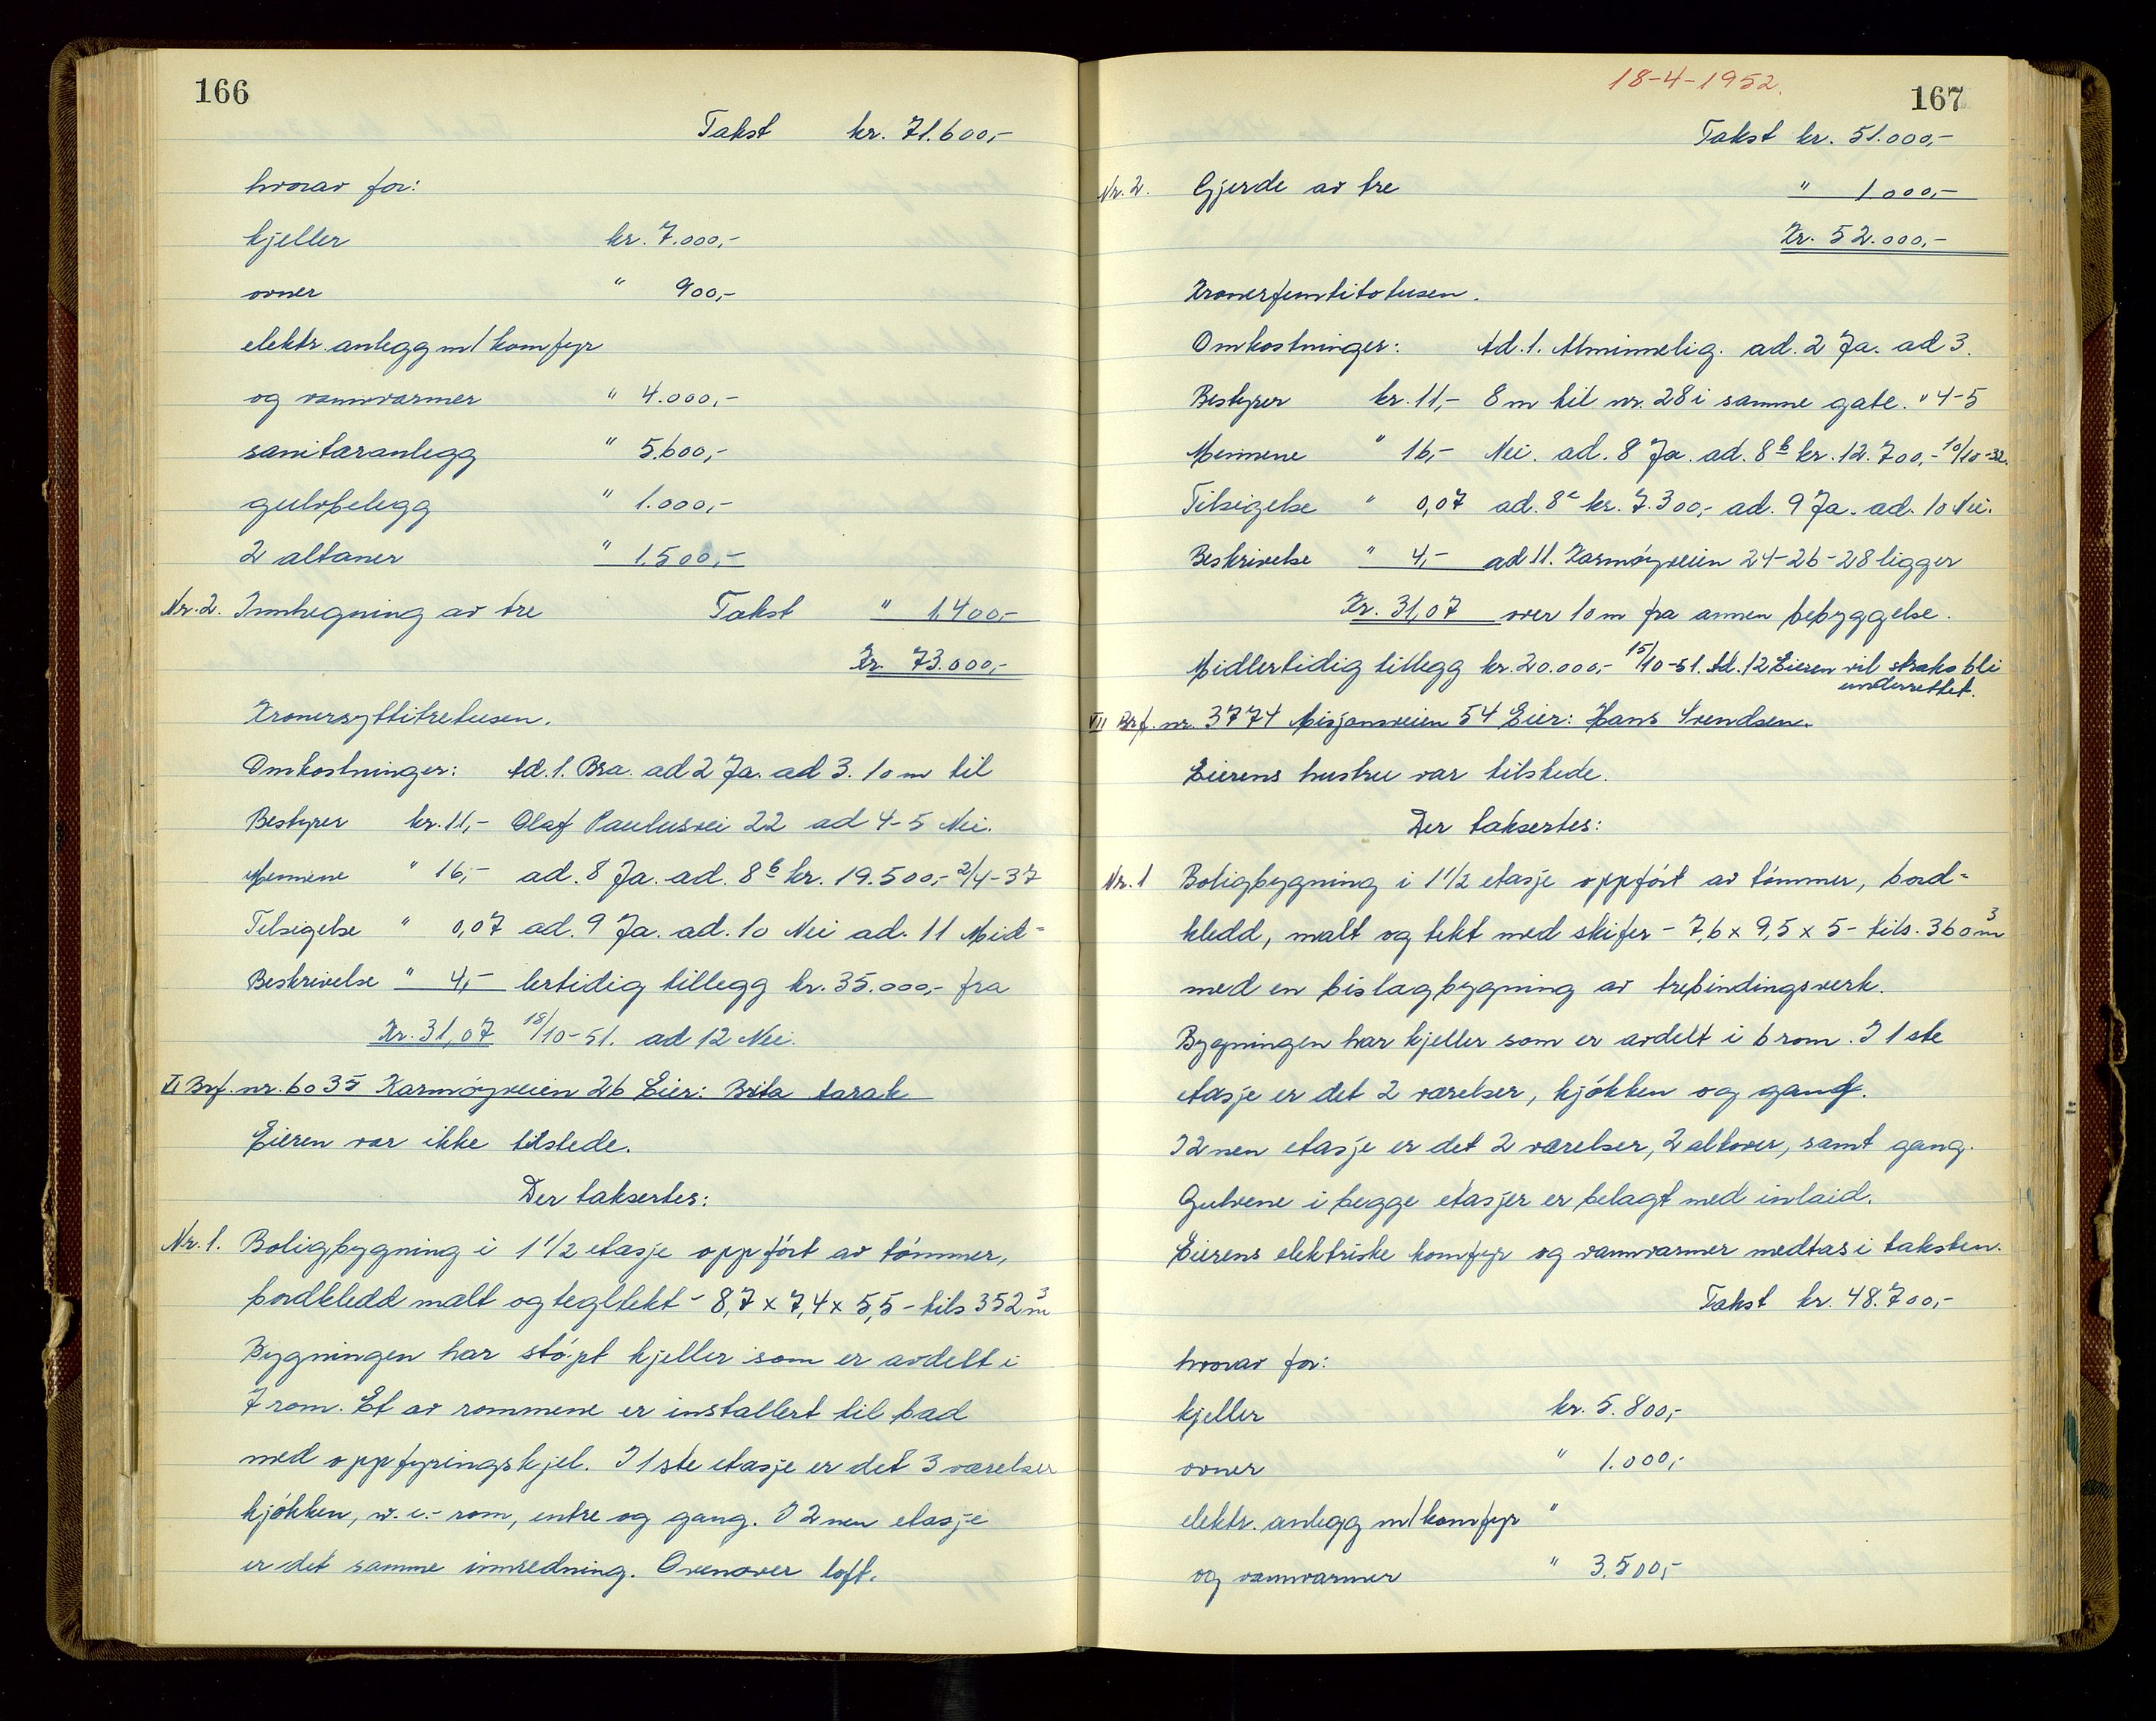 166
Takst kr. 71.600,-
hvorav for:
kjeller kr. 7.000,-
ovner " 900,-
elektr. anlegg m/komfyr
og vannvarmer " 4.000,-
sanitæranlegg " 5.600,-
gulvbelegg " 1.000,-
2 altaner " 1.500,-
Nr. 2. Innhegning av tre Takst " 1.400,-
Kr. 73.000,-
Kronersyttitretusen.
Omkostninger: Ad. 1. Bra. ad 2 Ja. ad 3. 10 m til
Bestyrer kr. 11,- Olaf Paulusvei 22 ad 4-5 Nei.
Mennene " 16,- ad. 8 Ja. ad. 8 b kr. 19.500,- 2/4-37
Tilsigelse " 0,07 ad. 9 Ja. ad. 10 Nei ad. 11 Mid=
Beskrivelse " 4,- lertidig tillegg kr. 35.000,- fra
Kr. 31,07 18/10-51. ad 12 Nei.
VI Brf. nr. 6035 Karmøyveien 26 Eier: Brita Aarak
Eieren var ikke tilstede.
Der taksertes:
Nr. 1. Boligbygning i 1 1/2 etasje oppført av tømmer,
bordkledd malt og tegltekt - 8,7 x 7,4 x 5,5 - tils 352 m3
Bygningen har støpt kjeller som er avdelt i
7 rom. Et av rommene er installert til bad
med oppfyringskjel. I 1ste etasje er det 3 værelser
kjøkken, w.c.-rom, entre og gang. I 2nen etasje
er det samme innredning. Ovenover loft.
18-4-1952.
167
Takst kr. 51.000,-
Nr. 2. Gjerde av tre " 1000,-
Kr. 52.000,-
Kronerfemtitotusen.
Omkostninger: Ad. 1. Alminnelig. ad. 2 Ja. ad 3.
Bestyrer kr. 11,- 8 m til nr. 28 i samme gate. " 4-5
Mennene " 16,- Nei. ad. 8 Ja. ad. 8 b kr. 12.700,- 10/10-32.
Tilsigelse " 0,07 ad. 8 c kr. 7.300,- ad. 9 Ja. ad. 10 Nei.
Beskrivelse " 4,- ad 11. Karmøyveien 24-26-28 ligger
Kr. 31,07 over 10 m fra annen bebyggelse.
Midlertidig tillegg kr. 20.000,- 15/10-51. Ad. 12 Eieren vil straks bli
underrettet.
VII Brf. nr. 3774 Misjonsveien 54 Eier: Hans Svendsen.
Eierens hustru var tilstede.
Der taksertes:
Nr. 1 Boligbygning i 1 1/2 etasje oppført av tømmer, bord=
kledd, malt og tekt med skifer - 7,6 x 9,5 x 5 - tils. 360 m3
med en bislagbygning av trebindingsverk.
Bygningen har kjeller som er avdelt i 6 rom. I 1 ste
etasje er det 2 værelser, kjøkken og gang.
I 2 nen etasje er det 2 værelser, 2 alkover, samt gang.
Gulvene i begge etasjer er belagt med inlaid.
Eierens elektriske komfyr og vannvarmer medtas i taksten.
Takst kr. 48.700,-
hvorav for:
kjeller kr. 5.800,-
ovner " 1.000,-
elektr. anlegg m/komfyr "
og vannvarmer " 3.500,-